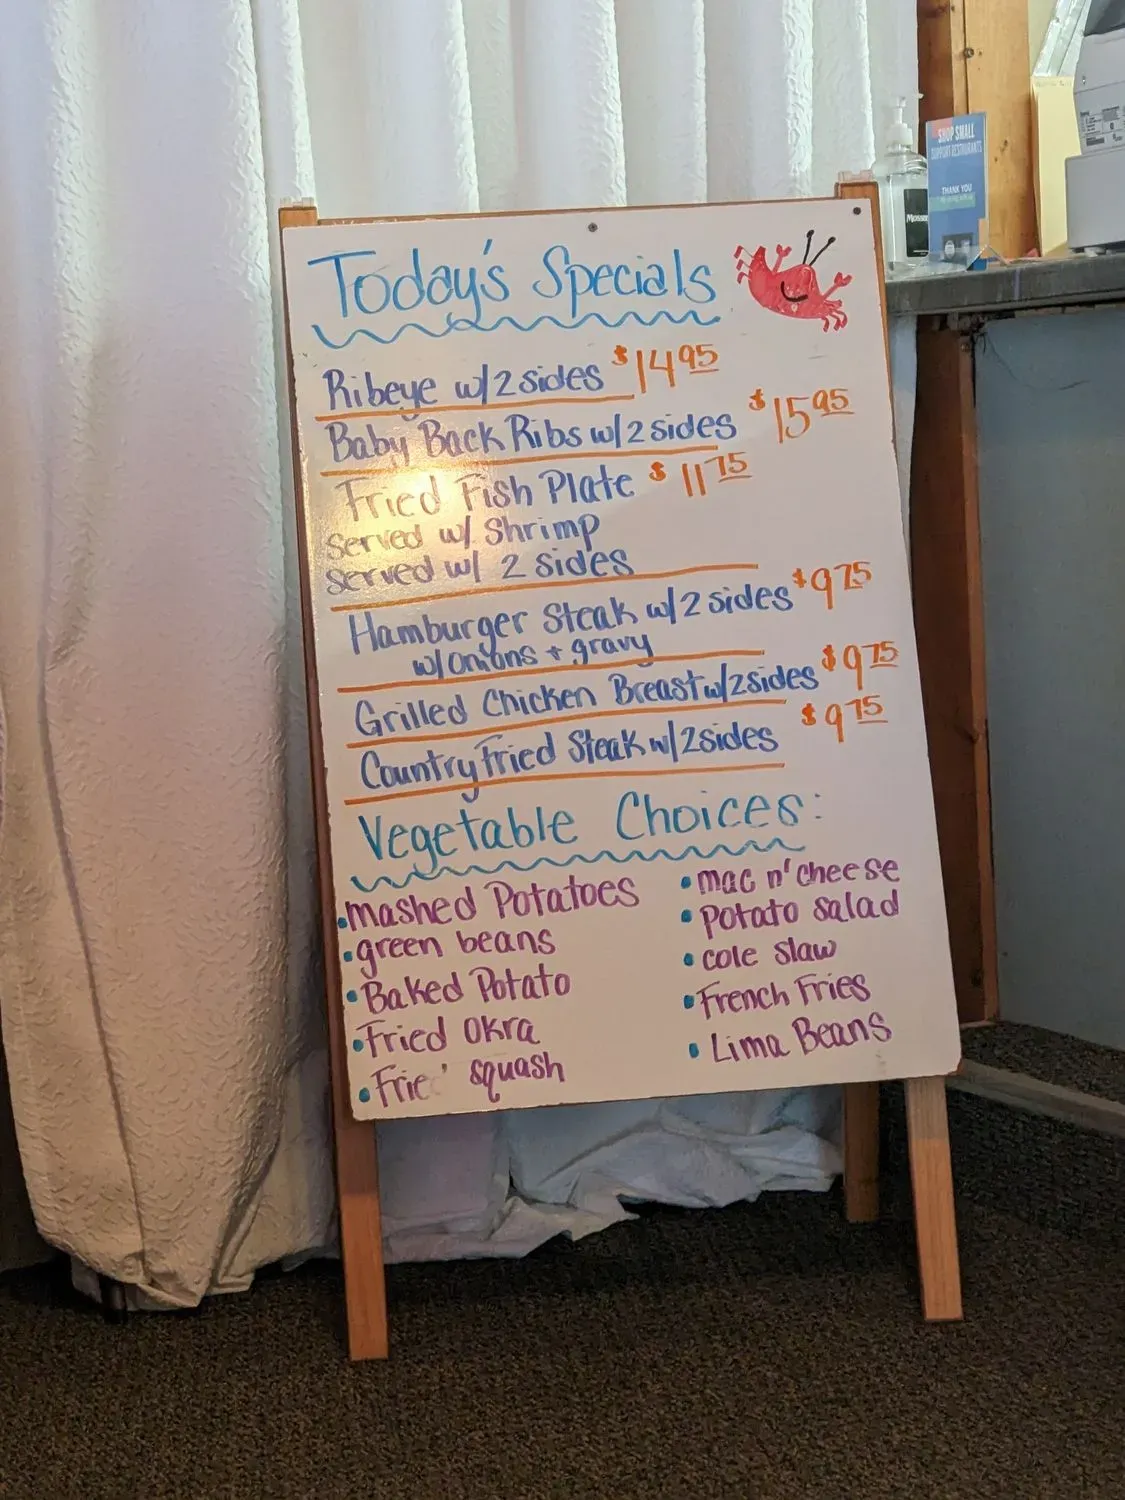 Today's Specials
Ribeye w/2 sides $14.95
Baby Back Ribs w/2 sides $15.95
Fried Fish Plate $11.75
served w/ Shrimp
served w/ 2 sides
Hamburger Steak w/2 sides $9.75
w/onions + gravy
Grilled Chicken Breast w/2 sides $9.75
Country Fried Steak w/2 sides $9.75
Vegetable Choices:
• mashed Potatoes
• green beans
• Baked Potato
• Fried Okra
• Frie' squash
• mac n' cheese
• potato salad
• cole slaw
• French Fries
• Lima Beans
SHOP SMALL
SUPPORT RESTAURANTS
THANK YOU